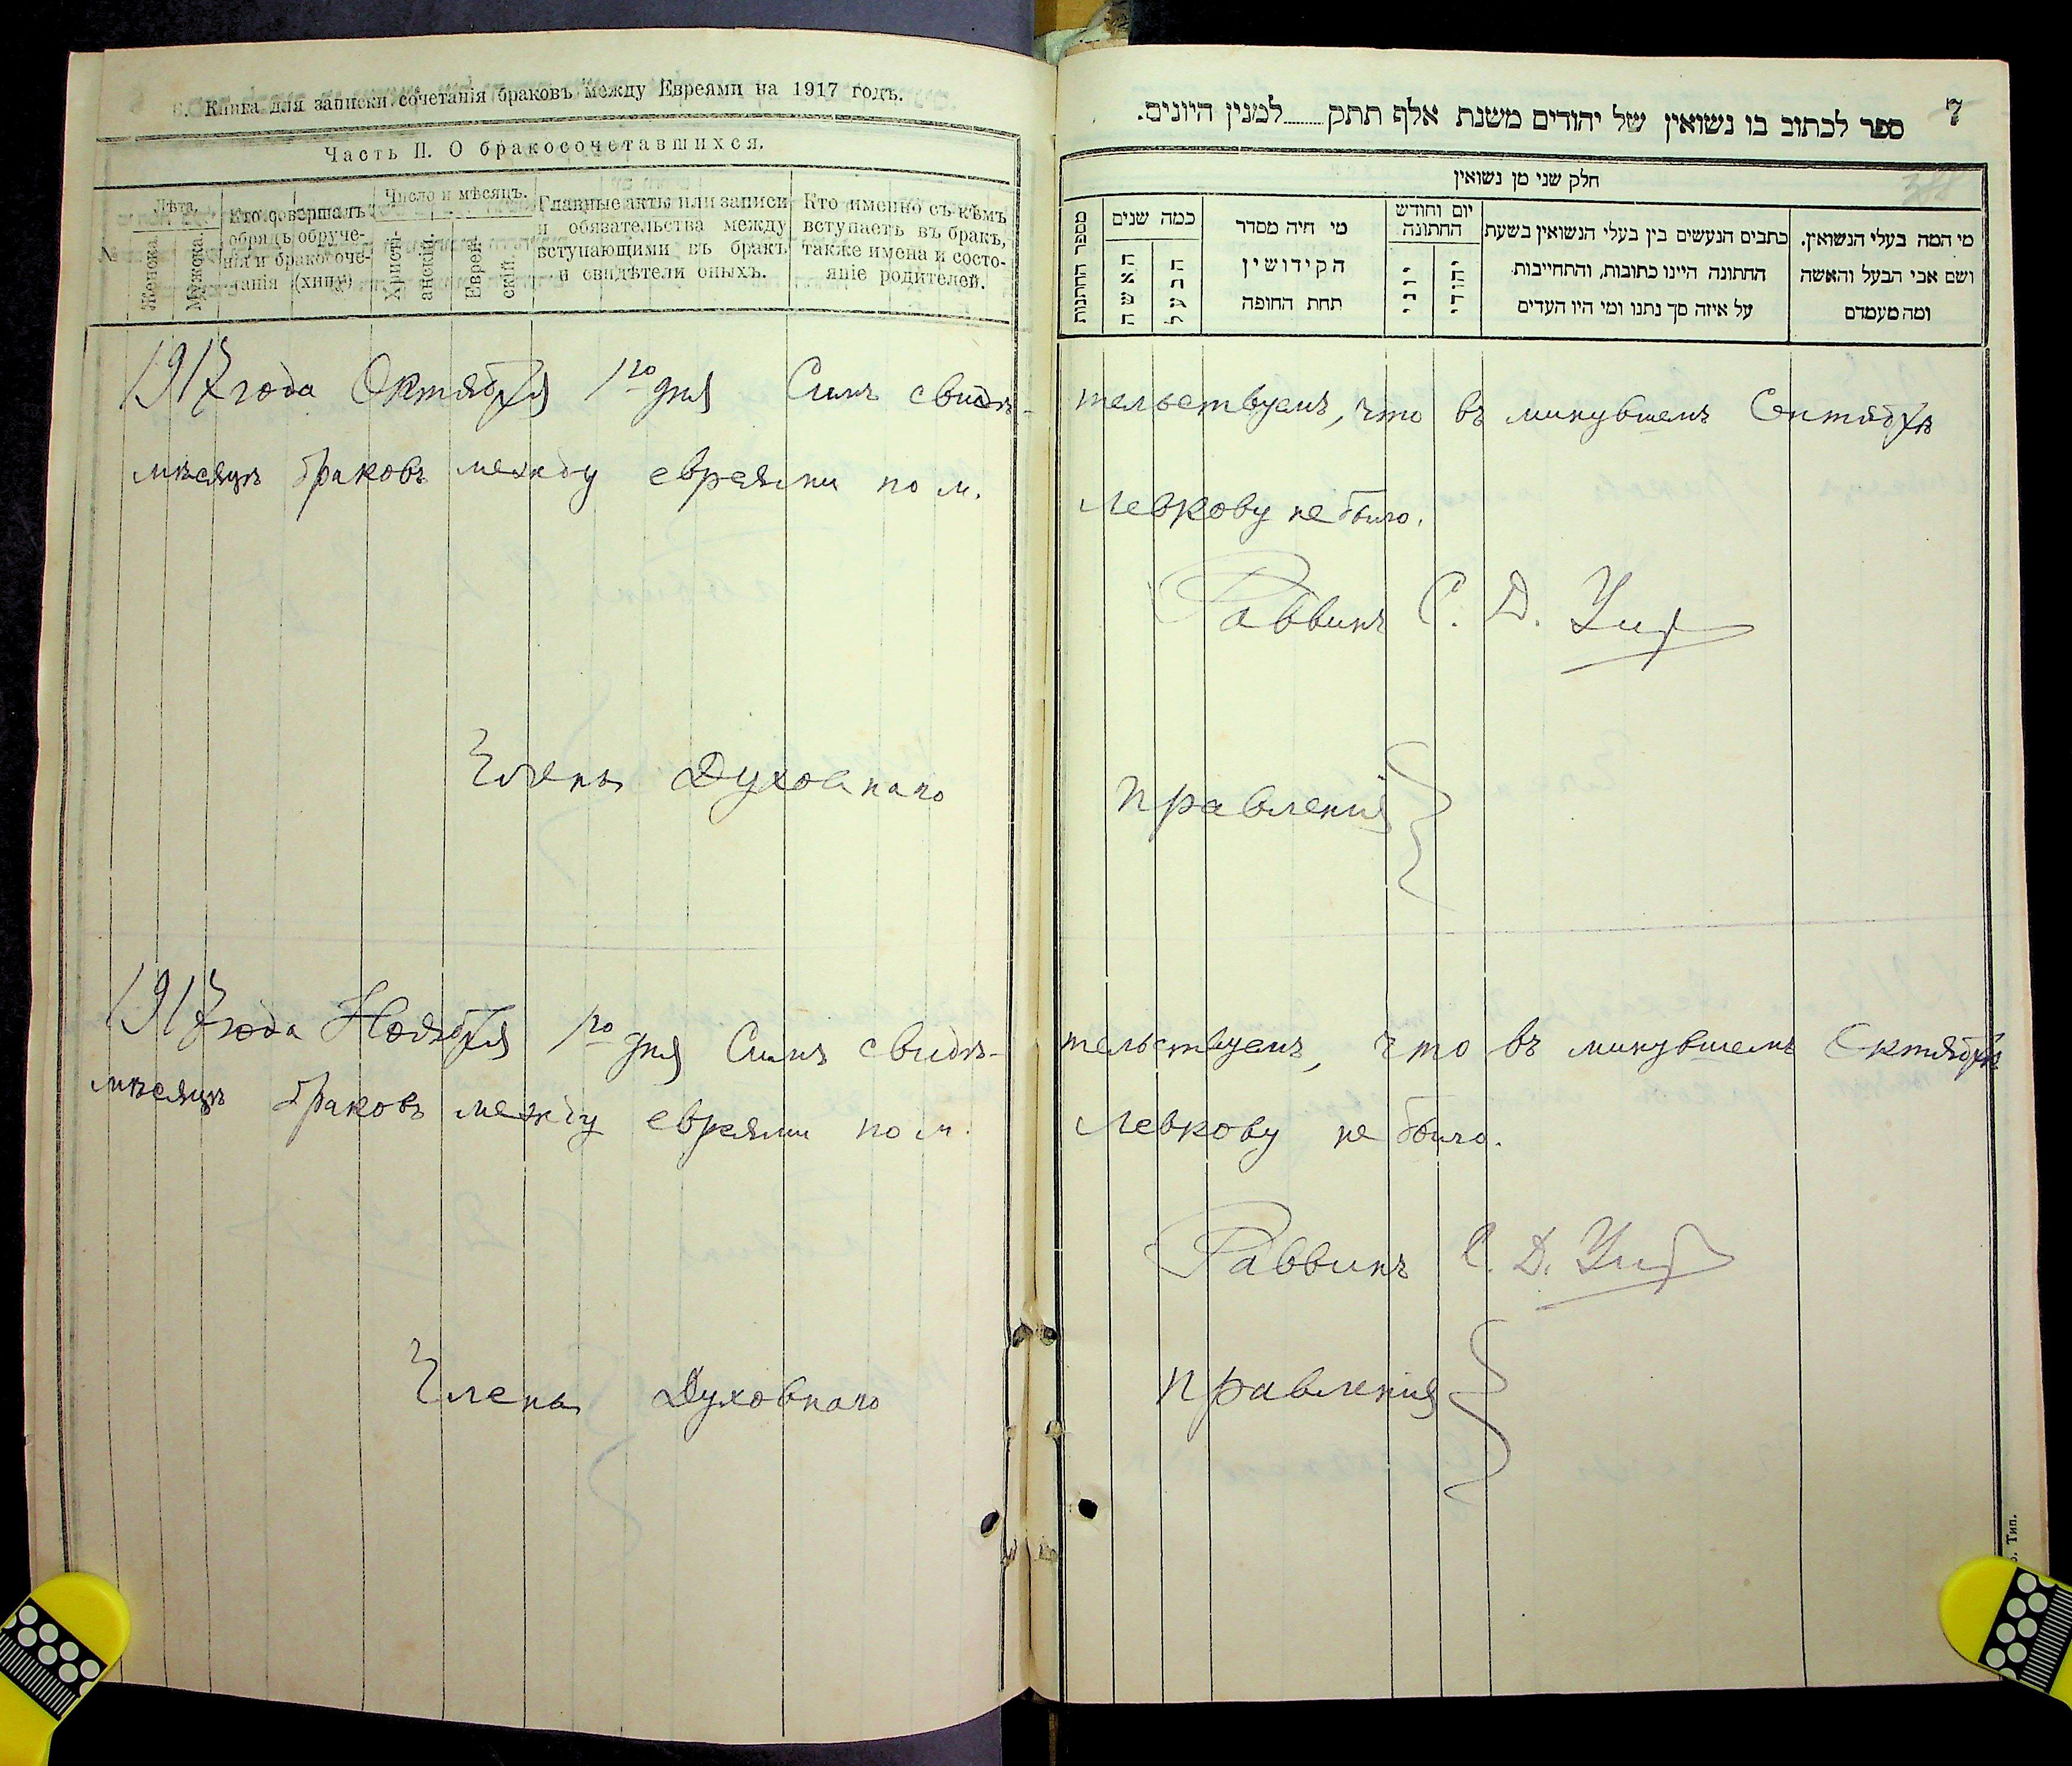 Книга для записки сочетанія браковъ между Евреями на 1917 годъ.
Часть II. О бракосочетавшихся.
№
Лѣта.
Женска.
Мужска.
Кто совершалъ
обрядъ обруче-
нія и бракосоче-
танія (хипу)
Число и мѣсяцъ.
Христі-
анскій.
Еврей-
скій.
Главные акты или записи
и обязательства между
вступающими въ бракъ
и свидѣтели оныхъ.
Кто именно съ кѣмъ
вступаетъ въ бракъ,
также имена и состо-
яніе родителей.
1917 года Октября 1го дня Симъ свидѣ-
мѣсяцѣ браковъ между евреями по м.
Члены Духовнаго
1917 года Ноября 1го дня Симъ свидѣ-
мѣсяцѣ браковъ между евреями по м.
Члены Духовнаго
7
ספר לכתוב בו נשואין של יהודים משנת אלף תתק........למנין היונים.
חלק שני מן נשואין
מספר החתונות
כמה שנים
האשה
הבעל
מי חיה מסדר
הקידושין
תחת החופה
יום וחודש
החתונה
יוני
יהודי
כתבים הנעשים בין בעלי הנשואין בשעת
החתונה היינו כתובות, והתחייבות
על איזה סך נתנו ומי היו העדים
מי המה בעלי הנשואין.
ושם אבי הבעל והאשה
ומה מעמדם
тельствуемъ, что въ минувшемъ Сентябрѣ
Левкову не было.
Раввинъ С. Д.
Правленія
тельствуемъ, что въ минувшемъ Октябрѣ
Левкову не было.
Раввинъ С. Д.
Правленія
Тип.